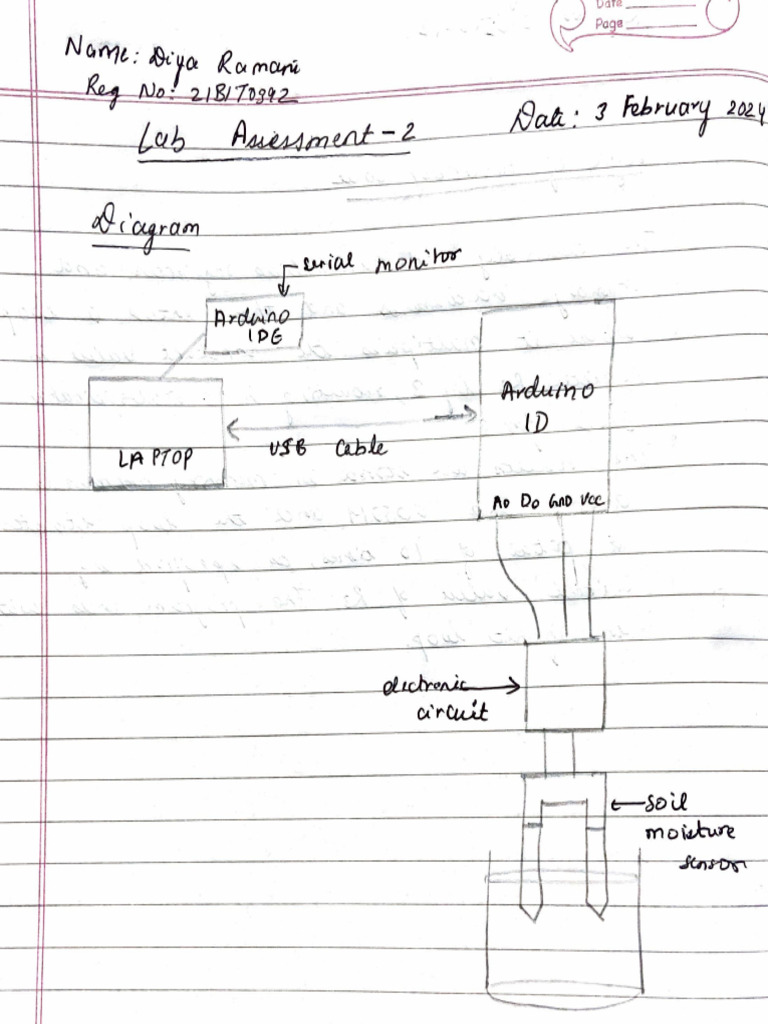 Date
Page
Name: Diya Ramani
Reg No: 21BIT0392
Lab Assessment-2
Date: 3 February 2024
Diagram
serial monitor
Arduino
IDE
Arduino
ID
LAPTOP
USB Cable
A0 D0 GND VCC
electronic
circuit
soil
moisture
sensor